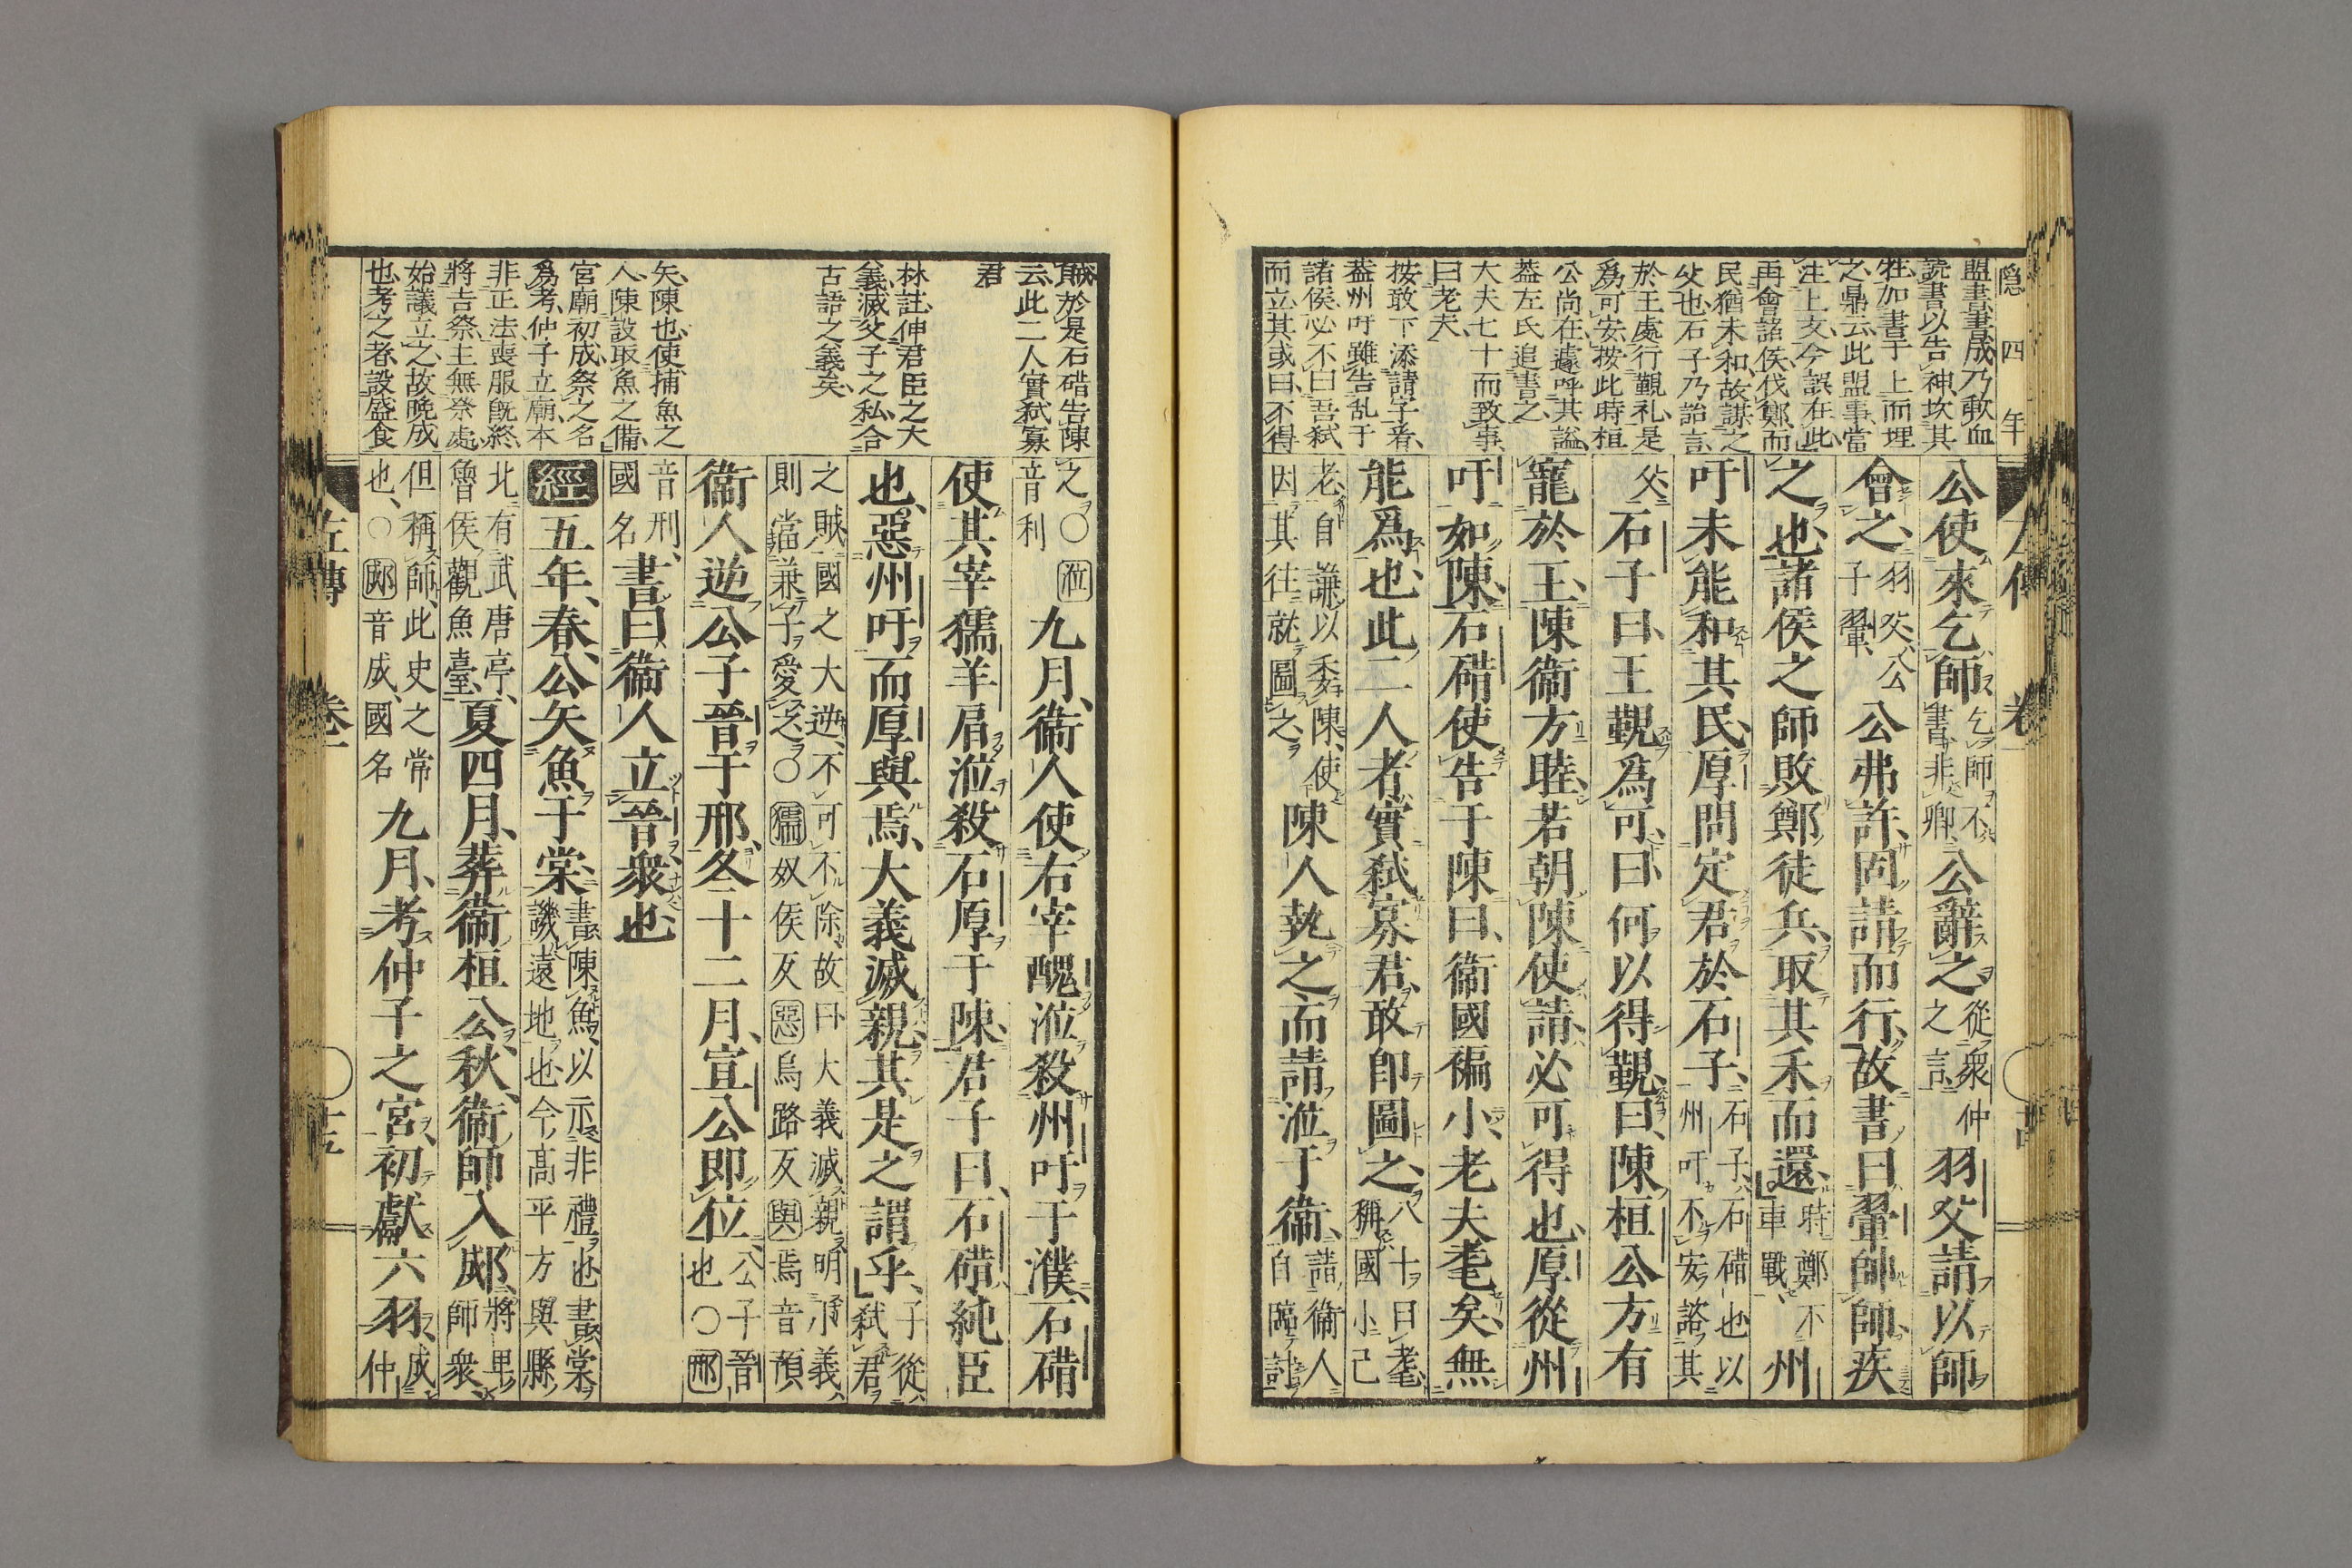 隠四年
盟書書成乃歃血
読書以告神坎其
牲加書于上而埋
之鼎云此盟事當
注上文今誤在此
再會諸侯伐鄭而
民猶未和故謀之
父也石子乃詒言
於王處行覲礼是
爲可安按此時桓
公尚在遽呼其謚
蓋左氏追書之
大夫七十而致事
曰老夫
按敢下添請子看
蓋州吁雖告乱于
諸侯必不曰吾弑
而立其或曰不得
公使來乞師乞師不書非卿公辭之從衆仲之言羽父請以師
會之羽父公子翬公弗許固請而行故書曰翬帥師疾
之也諸侯之師敗鄭徒兵取其禾而還時鄭不車戰州
吁未能和其民厚問定君於石子石子石碏也以州吁不安諮其
父石子曰王覲爲可曰何以得覲曰陳桓公方有
寵於王陳衞方睦若朝陳使請必可得也厚從州
吁如陳石碏使告于陳曰衞國褊小老夫耄矣無
能爲也此二人者實弑寡君敢即圖之八十曰耄稱國小己
老自謙以委陳使因其往就圖之陳人執之而請涖于衞請衞人自臨討
賊於是石碏告陳
云此二人實弑寡
君
林註伸君臣之大
義滅父子之私合
古語之義矣
矢陳也使捕魚之
人陳設取魚之備
宮廟初成祭之名
爲考仲子立廟本
非正法喪服既終
將吉祭主無祭處
始議立之故晩成
也考之者設盛食
之○涖音利九月衞人使右宰醜涖殺州吁于濮石碏
使其宰獳羊肩涖殺石厚于陳君子曰石碏純臣
也惡州吁而厚與焉大義滅親其是之謂乎子從弑君
之賊國之大逆不可不除故曰大義滅親明小義則當兼子愛之○獳奴侯反惡烏路反與焉音預
衞人逆公子晉于邢冬十二月宣公即位公子晉也○邢
音刑國名書曰衞人立晉衆也
經五年春公矢魚于棠書陳魚以示非禮也書棠譏遠地也今高平方與縣
北有武唐亭魯侯觀魚臺夏四月葬衞桓公秋衞師入郕將卑師衆
但稱師此史之常也○郕音成國名九月考仲子之宮初獻六羽成仲
左傳
卷一
十五